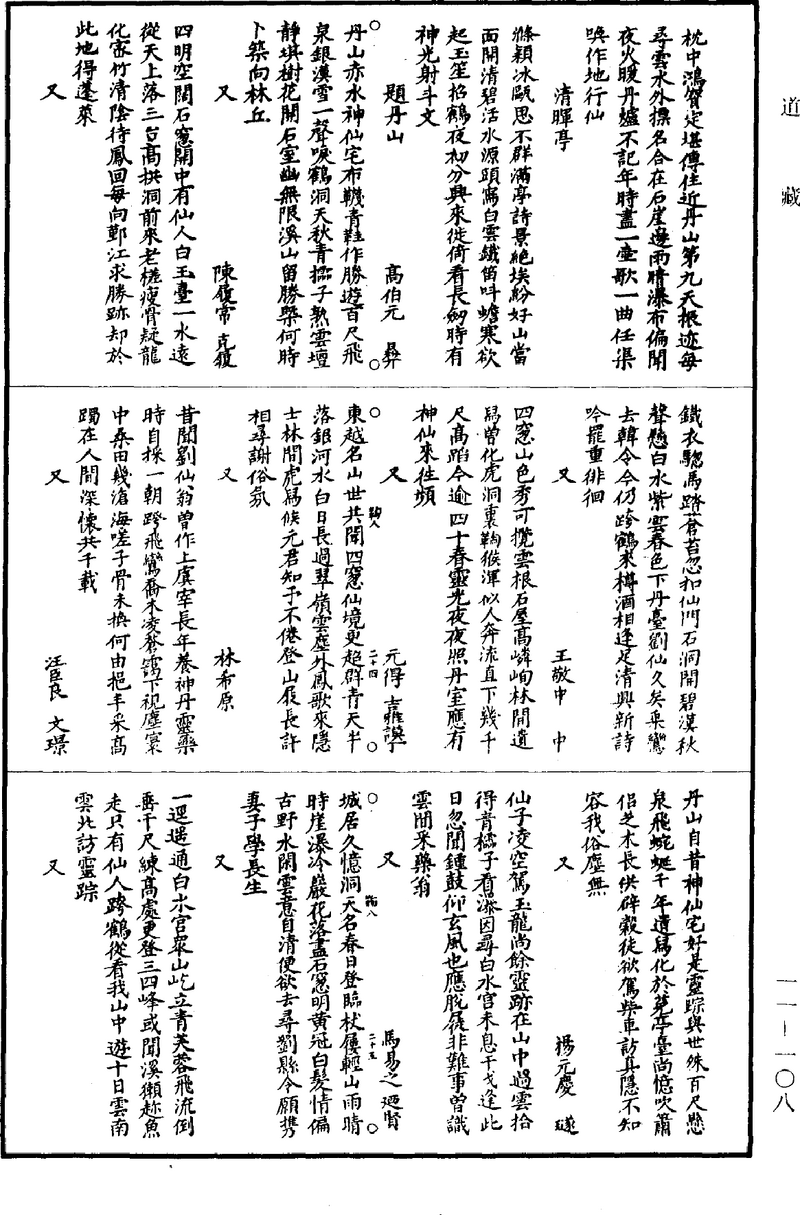 道藏
枕中鴻寶定堪傳住近丹山第九天根迹每
尋雲水外標名合在石崖邊雨晴瀑布偏聞
夜火暖丹爐不記年時盡一壷歌一曲任渠
喚作地行仙
清暉亭
滌穎冰甌思不群滿亭詩景絶埃紛好山當
面開清碧活水源頭寫白雲鐵笛叫蟾寒欲
起玉笙招鶴夜初分興來徙倚看長劒時有
神光射斗文
題丹山 高伯元 彝
丹山赤水神仙宅布韈青鞋作勝遊百尺飛
泉銀漢雪一聲唳鶴洞天秋青櫺子熟雲壇
靜琪樹花開石室幽無限溪山留勝槩何時
卜築向林丘
又 陳履常 克履
四明空闊石窓開中有仙人白玉臺一水遠
從天上落三台高拱洞前來老槎瘦骨疑龍
化家竹清陰待鳳回每向鄞江求勝跡却於
此地得蓬萊
又
鐵衣驄馬踏蒼苔忽扣仙門石洞開碧漢秋
聲懸白水紫雲春色下丹臺劉仙久矣乘鸞
去韓令今仍跨鶴來樽酒相逢足清興新詩
吟罷重徘徊
又 王敬中 中
四窓山色秀可攬雲根石屋高嶙峋林間遺
舄曽化虎洞裏鞠猴渾似人奔流直下幾千
尺高蹈今逾四十春靈光夜夜照丹室應有
神仙來往頻
又 元得 吉雅謨丁
東越名山世共聞四窓仙境更超群青天半
落銀河水白日長過翠嶺雲塵外鳳歌來隱
士林間虎舄候元君知予不倦登山屐長許
相尋謝俗氛
鞠八
二十四
又 林希原
昔聞劉仙翁曽作上虞宰長年養神丹靈藥
時自採一朝跨飛鸞喬木凌蒼靄下視塵寰
中桑田幾滄海嗟子骨未換何由挹丰采高
躅在人間深懷共千載
又 汪臣良 文璟
丹山自昔神仙宅好是靈踪與世殊百尺懸
泉飛蜿蜒千年遺舄化於菟亭臺尚憶吹簫
侣芝术長供辟穀徒欲駕柴車訪真隱不知
容我俗塵無
又 楊元慶 璲
仙子凌空駕玉龍尚餘靈跡在山中過雲拾
得青櫺子看瀑因尋白水宮未息干戈逢此
日忽聞鍾鼓仰玄風也應脫屣非難事曽識
雲間采藥翁
又 馬易之 廼賢
城居久憶洞天名春日登臨杖屨輕山雨晴
時崖瀑冷巖花落盡石窓明黄冠白髮情偏
古野水閑雲意自清便欲去尋劉縣令願携
妻子學長生
鞠八
二十五
又
一逕遥通白水宮翠山屹立青芙蓉飛流倒
垂千尺練高處更登三四峰或聞溪獺趂魚
走只有仙人跨鶴從看我山中遊十日雲南
雲北訪靈踪
又
一一-一〇八